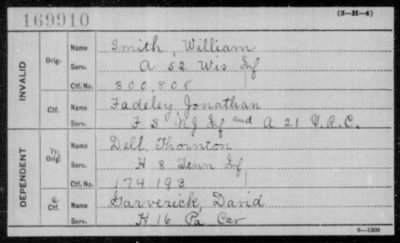 169910 (3-H-4)
INVALID
Orig. Name Smith, William
Serv. A 52 Wis Inf
Ctf. No. 300,808
Ctf. Name Fadeley, Jonathan
Serv. F 8 NJ Inf and A 21 V.R.C.
DEPENDENT
Orig. Name Dell, Thornton
Serv. H 8 Tenn Inf
Ctf. No. 174,193
Ctf. Name Garverick, David
Serv. H 16 Pa Cav